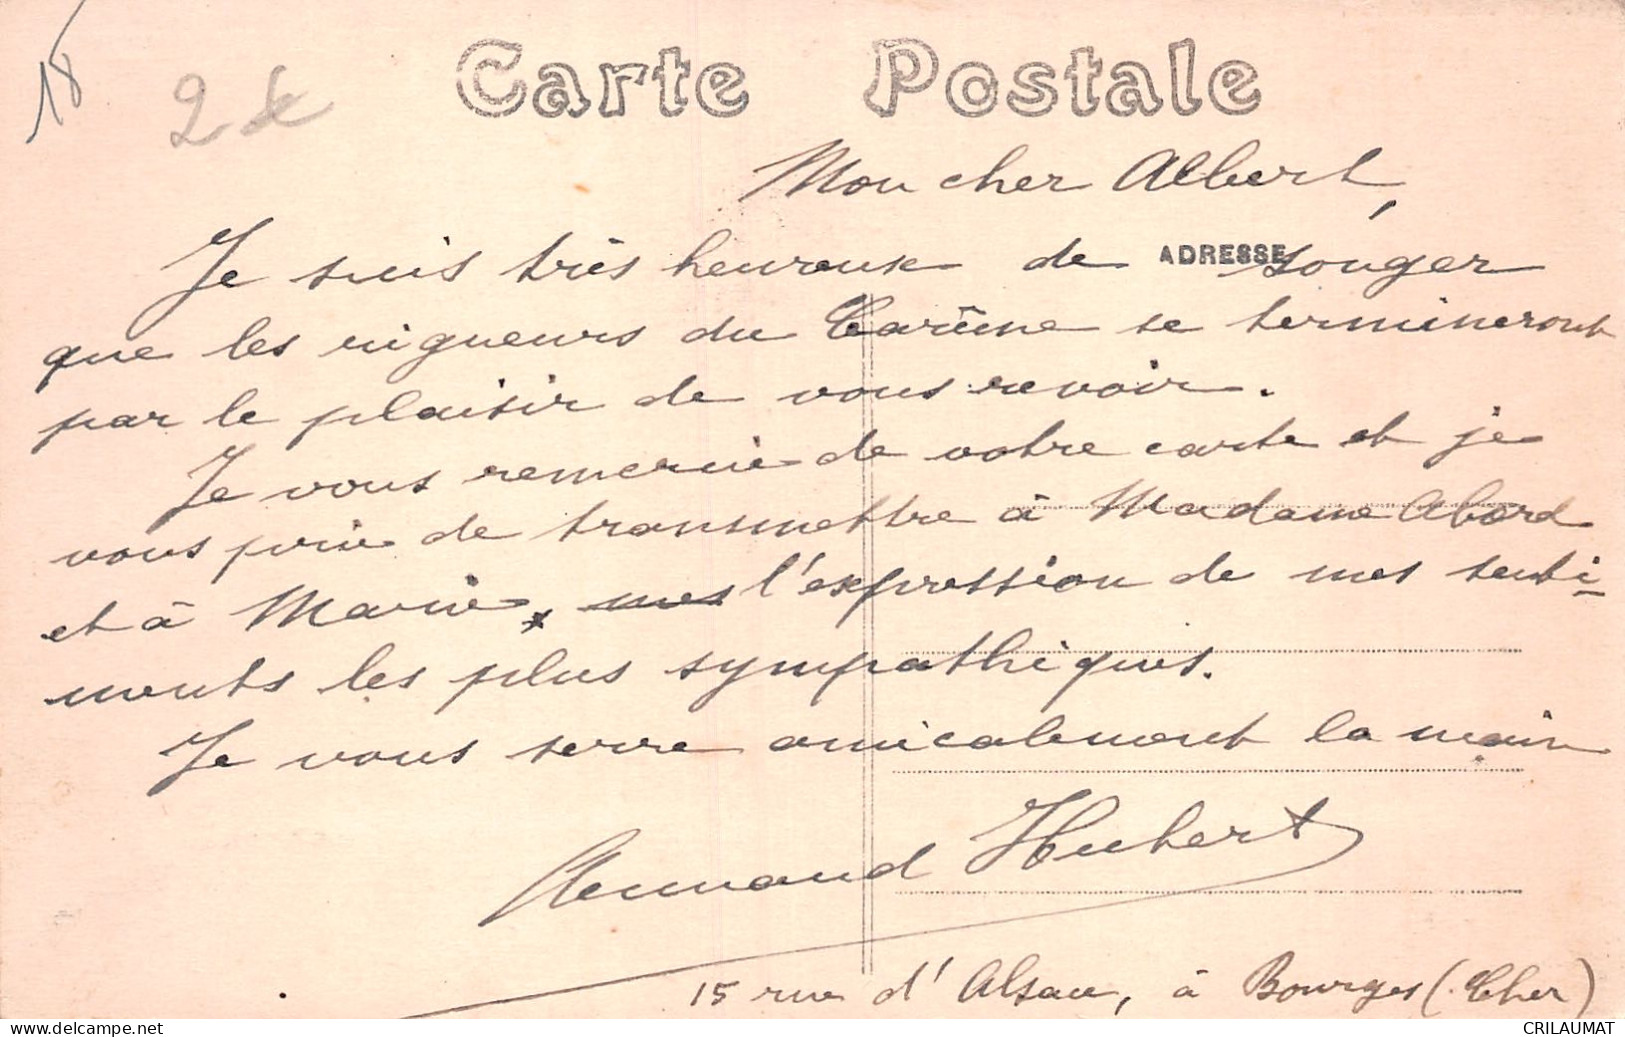 18
2
Carte Postale
Mon cher Albert,
ADRESSE
Je suis très heureux de songer
que les rigueurs du Carême se termineront
par le plaisir de vous revoir.
Je vous remercie de votre carte et je
vous prie de transmettre à Madame Abord
et à Marie, mes l'expression de mes senti-
ments les plus sympathiques.
Je vous serre amicalement la main
Armand Hubert
15 rue d'Alsace, à Bourges (Cher)
CRILAUMAT